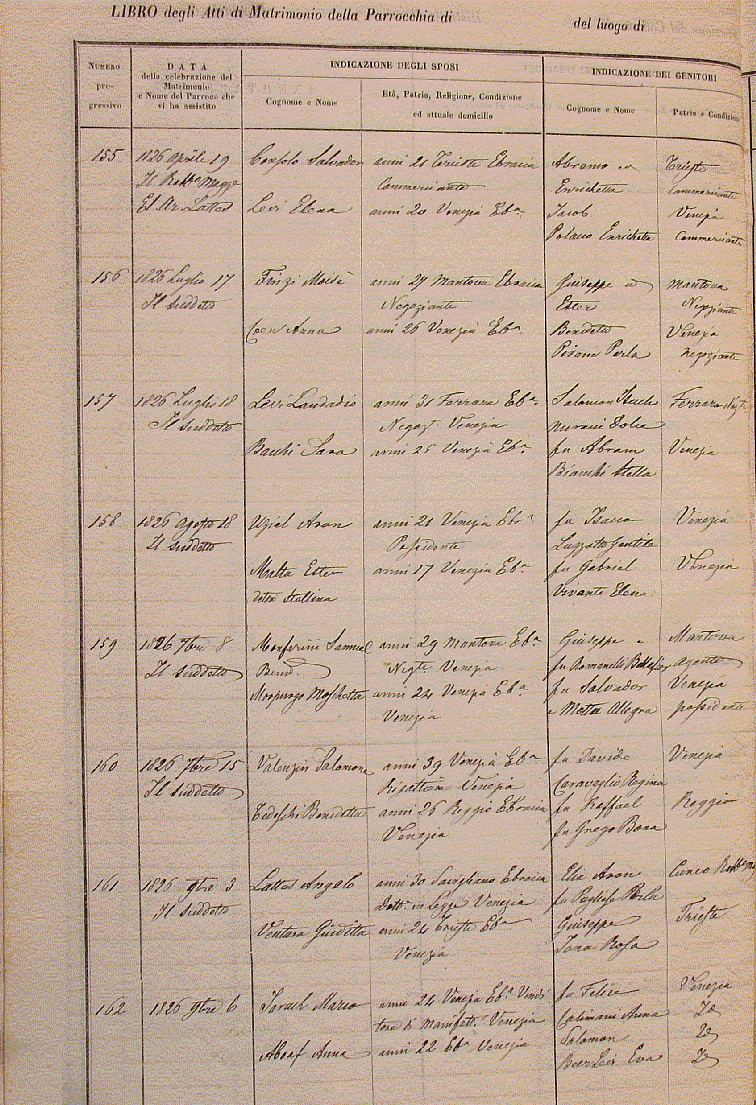 LIBRO degli Atti di Matrimonio della Parrocchia di del luogo di
NUMERO progressivo
DATA della celebrazione del Matrimonio e Nome del Parroco che vi ha assistito
INDICAZIONE DEGLI SPOSI
Cognome e Nome
Età, Patria, Religione, Condizione ed attuale domicilio
INDICAZIONE DEI GENITORI
Cognome e Nome
Patria e Condizione
155 1826 Aprile 19 Consolo Salvador anni 21 Trieste Ebraica Abramo Trieste
Il Commerciante Enrichetta Commerciante
Lattes Levi Elena anni 20 Venezia Eba Jacob Venezia
Polacco Enrichetta Commerciante
156 1826 Luglio 17 Finzi Moisè anni 29 Mantova Ebraica Giuseppe Mantova
Il suddetto Negoziante Ester Negoziante
Coen Anna anni 26 Venezia Eba Benedetto Venezia
Pisani Perla negoziante
157 1826 Luglio 18 Levi Laudadio anni 31 Ferrara Eba Salomon Ferrara
Il suddetto Negozt Venezia Dolce
Bachi Sara anni 25 Venezia Eba fu Abram Venezia
Bianchi Stella
158 1826 Agosto 18 Uziel Aron anni 21 Venezia Isacco Venezia
Il suddetto Possidente Luzzatto
Malta Ester anni 17 Venezia Eba fu Gabriel Venezia
detta Stellina Vivante Elena
159 1826 7bre 8 Monferini Samuel anni 29 Mantova Eba Giuseppe e Mantova
Il suddetto Bend. Negte Venezia fu Romanelli
Morpurgo Moschetta anni 24 Venezia Eba fu Salvador Venezia
Venezia e Motta Allegra possidente
160 1826 7bre 15 Valenzin Salomone anni 39 Venezia Eba fu Davide Venezia
Il suddetto Venezia Caraveglio Regina
Tedeschi Benedetta anni 26 Reggio Ebraica fu Raffael Reggio
Venezia fu Grego Bona
161 1826 9bre 3 Lattes Angelo anni 30 Savigliano Ebraica Elia Aron Cuneo
Il suddetto Dott. in Legge Venezia fu Perla
Ventura Giuditta anni 24 Trieste Eba Giuseppe Trieste
Venezia Jona Rosa
162 1826 9bre 6 Israel Marco anni 24 Venezia Eba Vendi fu Felice Venezia
tore di Manifatt. Venezia Calimani Anna
Salomon
Aboaf Anna anni 22 Eba Venezia Eva